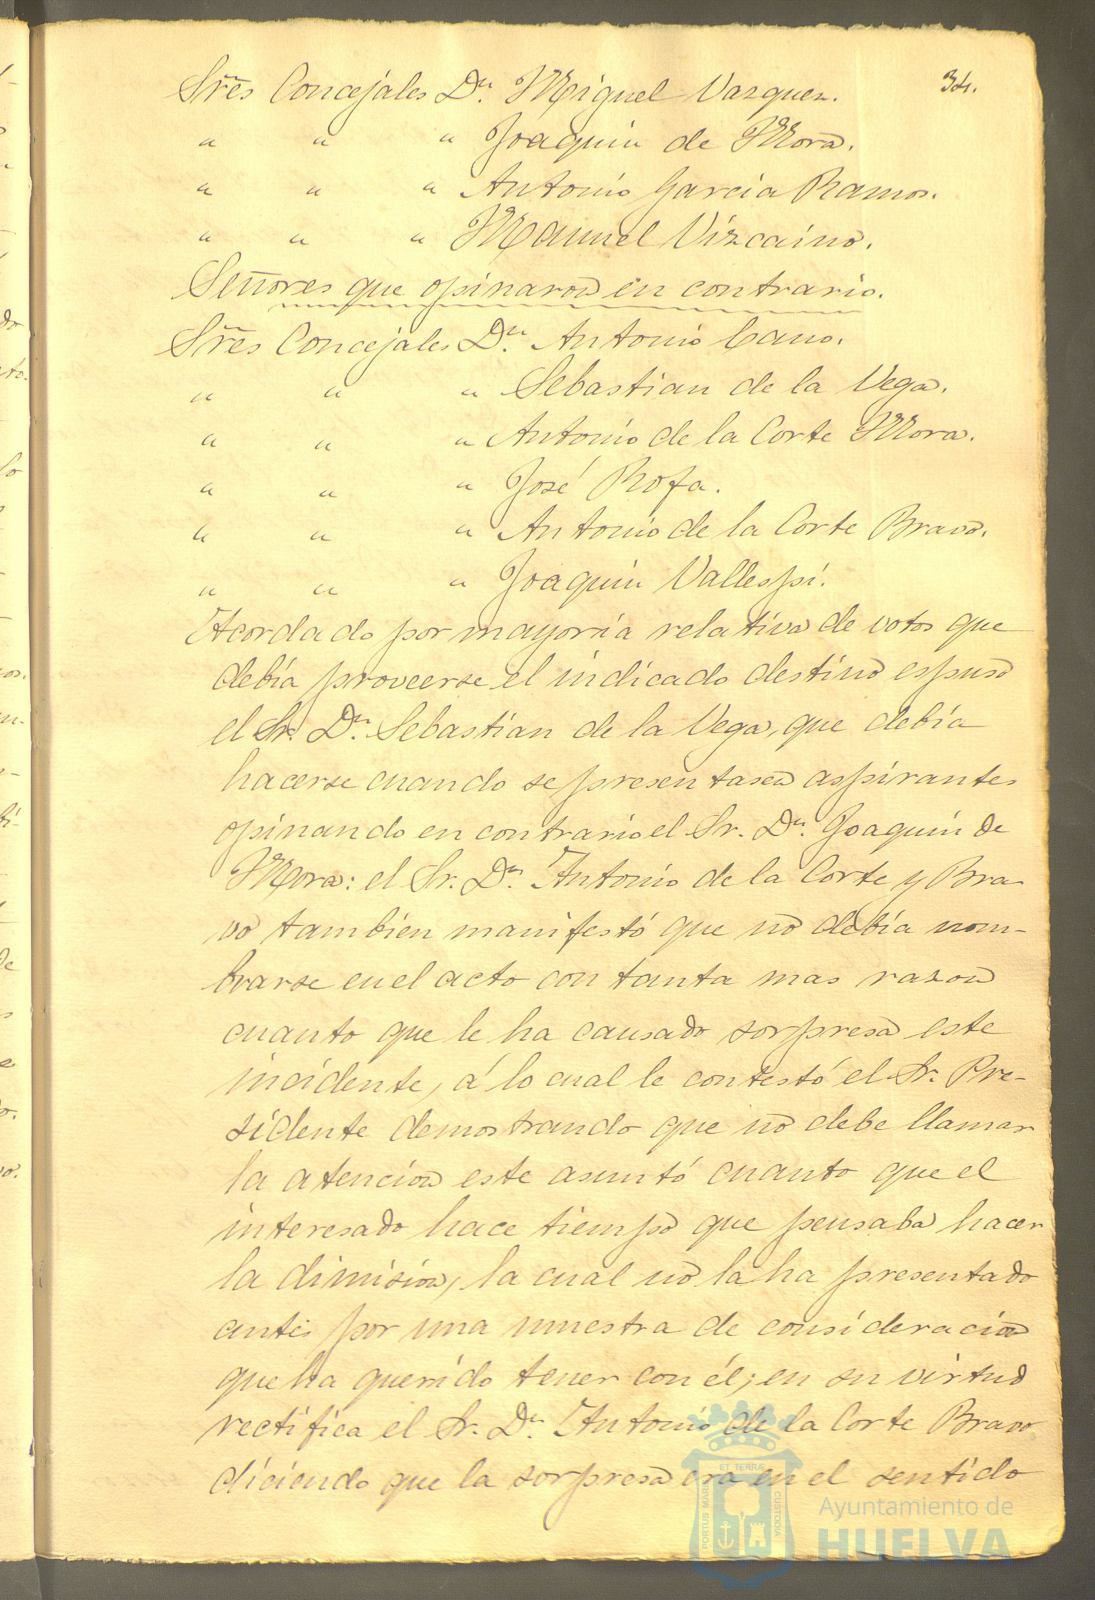 34.
Sres Concejales Dn. Miguel Vazquez.
" " " Joaquin de Mora.
" " " Antonio Garcia Ramos.
" " " Manuel Vizcaino.
Señores que opinaron en contrario.
Sres Concejales Dn. Antonio Cano.
" " " Sebastian de la Vega.
" " " Antonio de la Corte Mora.
" " " José Rofa.
" " " Antonio de la Corte Bravo.
" " " Joaquin Vallespí.
Acordado por mayoría relativa de votos que
debía proveerse el indicado destino espuso
el Sr. Dn. Sebastian de la Vega, que debía
hacerse cuando se presentasen aspirantes
opinando en contrario el Sr. Dn. Joaquin de
Mora: el Sr. Dn. Antonio de la Corte y Bra-
vo tambien manifestó que no debía nom-
brarse en el acto con tanta mas razon
cuanto que le ha causado sorpresa este
incidente, á lo cual le contestó el Sr. Pre-
sidente demostrando que no debe llamar
la atencion este asuntó cuanto que el
interesado hace tiempo que pensaba hacer
la dimision, la cual no la ha presentado
antes por una muestra de consideracion
que ha querido tener con él; en su virtud
rectifica el Sr. Dn. Antonio de la Corte Bravo
diciendo que la sorpresa era en el sentido
ET TERRÆ
PORTUS MARIS
CUSTODIA
Ayuntamiento de
HUELVA